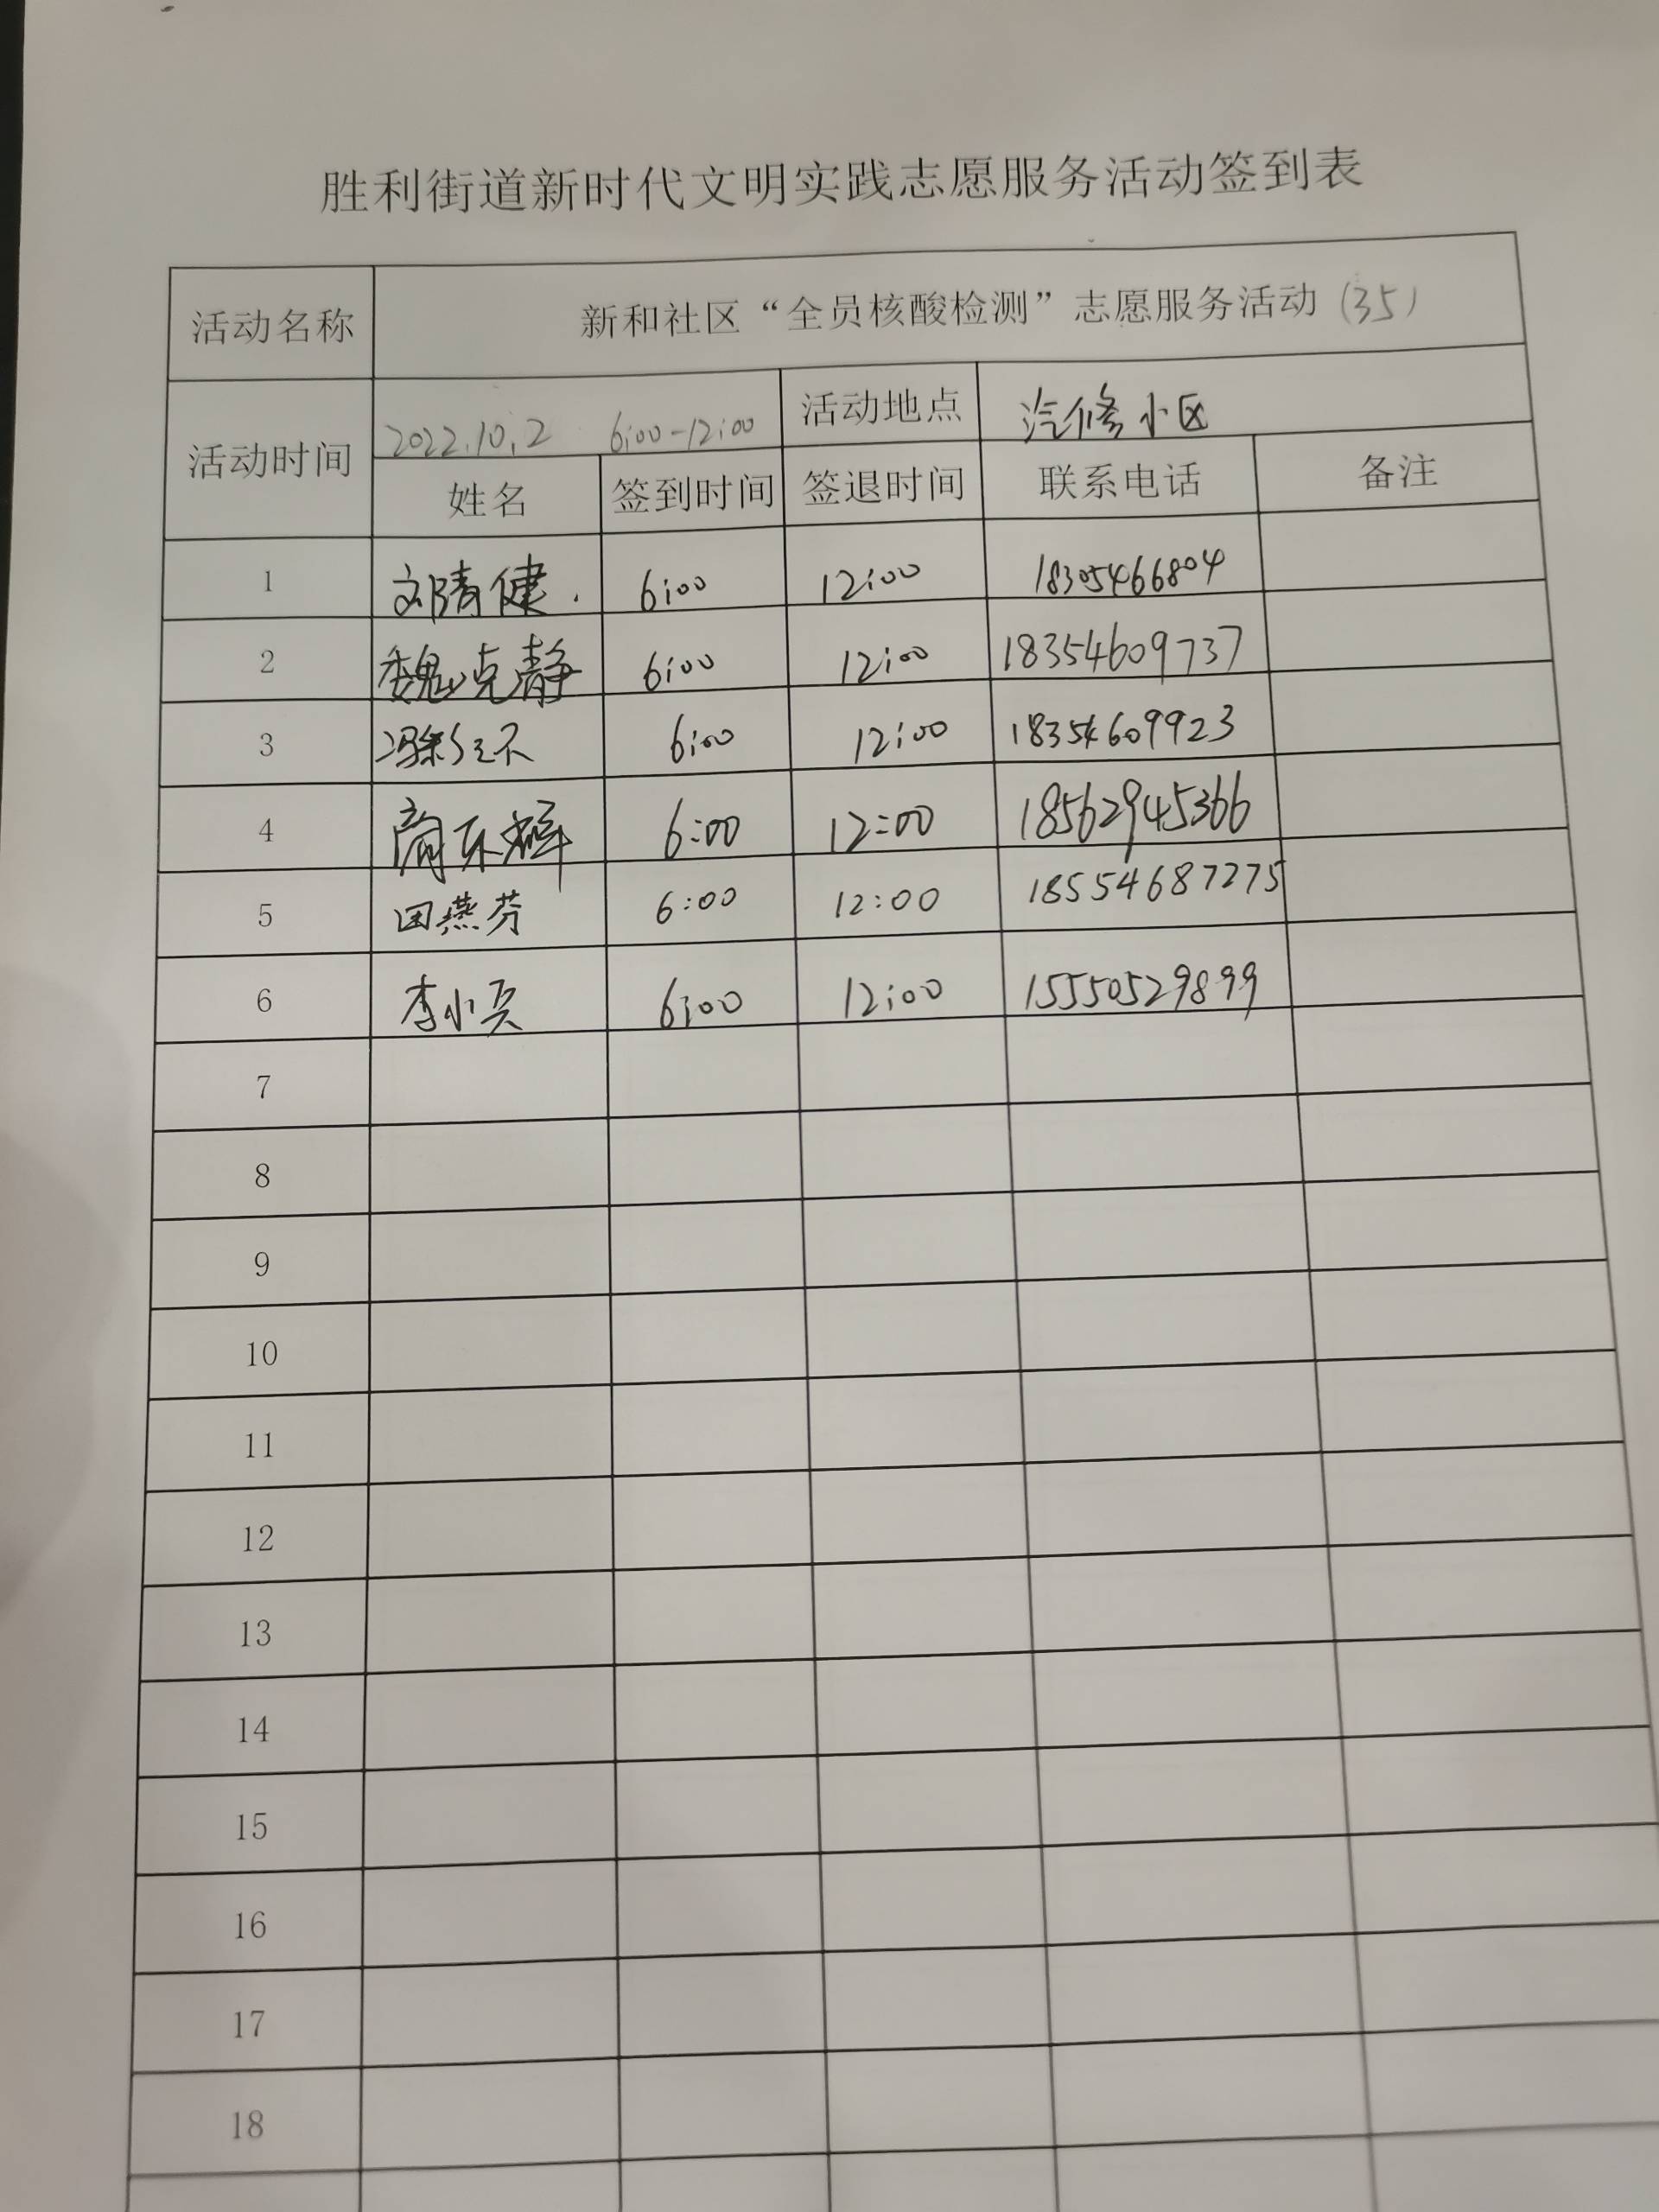 胜利街道新时代文明实践志愿服务活动签到表
活动名称 新和社区“全员核酸检测”志愿服务活动 (35)
活动时间 2022.10.2 6:00-12:00 活动地点 汽修小区
姓名 签到时间 签退时间 联系电话 备注
1 刘清健 6:00 12:00 18305466804
2 魏克静 6:00 12:00 18354609737
3 6:00 12:00 18354609923
4 6:00 12:00 18562945366
5 田燕芬 6:00 12:00 18554687275
6 李小兵 6:00 12:00 15550529899
7
8
9
10
11
12
13
14
15
16
17
18